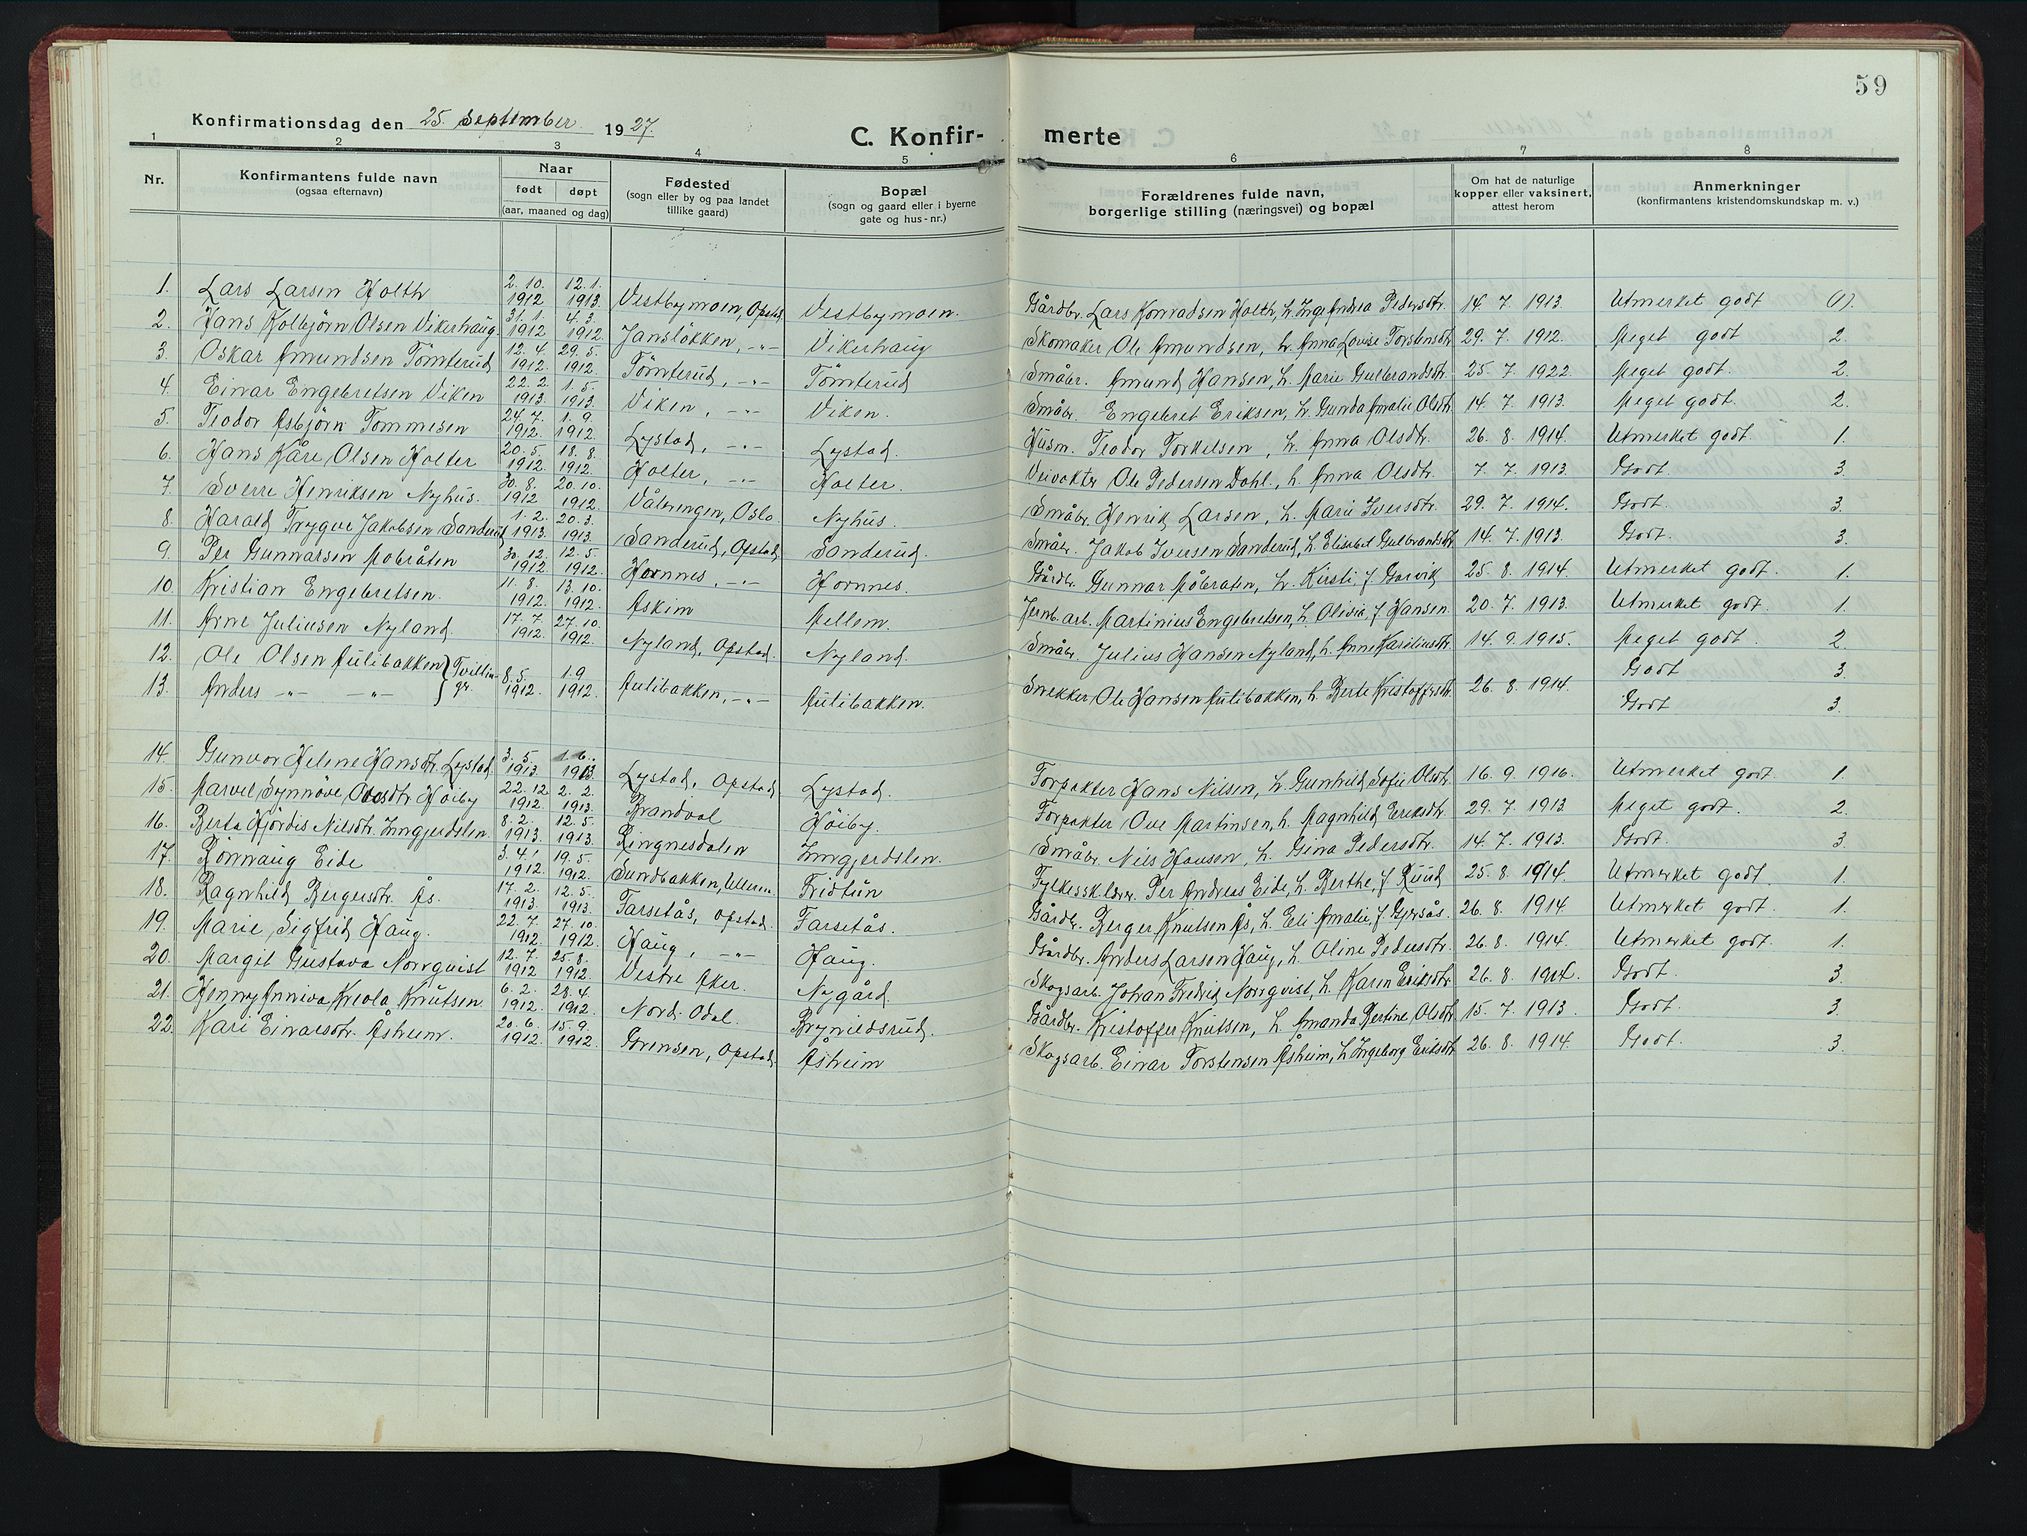 59
Konfirmationsdag den 25. September 1927.
C. Konfir- merte
1 2 3 4 5 6 7 8
Nr. Konfirmantens fulde navn (ogsaa efternavn) Naar født døpt (aar, maaned og dag) Fødested (sogn eller by og paa landet tillike gaard) Bopæl (sogn og gaard eller i byerne gate og hus-nr.) Forældrenes fulde navn, borgerlige stilling (næringsvei) og bopæl Om hat de naturlige kopper eller vaksinert, attest herom Anmerkninger (konfirmantens kristendomskundskap m. v.)
1. Lars Larsen Holth 2. 10. 1912 12. 1. 1913. Vestbymoen, Opstad Vestbymoen. Gårdbr. Lars Konradsen Holth, h. Inge Andrea Pedersdtr. 14. 7. 1913. Utmerket godt (1).
2. Hans Kolbjörn Olsen Vikerhaug 31. 1. 1912 4. 3. 1912. Janslökken, -"- Vikerhaug Skomaker Ole Amundsen, h. Anna Lovise Torstensdtr 29. 7. 1912. Meget godt 2.
3. Oskar Amundsen Tömterud 12. 4. 1912 29. 5. 1912. Tömterud, -"- Tömterud Småbr. Amund Hansen, h. Marie Gulbrandsdtr. 25. 7. 1922. Meget godt. 2.
4. Einar Engebretsen Viken 22. 2. 1913. 1. 5. 1913. Viken, -"- Viken. Småbr. Engebret Eriksen, h. Gunda Amalie Olsdtr. 14. 7. 1913. Meget godt. 2.
5. Teodor Asbjörn Tommesen 24. 7. 1912. 1. 9. 1912. Lystad, -"- Lystad. Husm. Teodor Torkelsen, h. Anna Olsdtr. 26. 8. 1914. Utmerket godt. 1.
6. Hans Kåre Olsen Holter 20. 5. 1912. 18. 8. 1912. Holter, -"- Holter. Veivokter Ole Pedersen Dahl, h. Anna Olsdtr. 7. 7. 1913. Godt. 3.
7. Sverre Henriksen Nyhus. 30. 8. 1912 20. 10. 1912. Vålerengen, Oslo. Nyhus. Småbr. Henrik Larsen, h. Marie Iversdtr. 29. 7. 1914. Godt. 3.
8. Harald Trygve Jakobsen Sanderud 1. 2. 1913. 20. 3. 1913. Sanderud, Opstad Sanderud. Småbr. Jakob Iversen Sanderud, h. Elisabet Gulbrandsdtr 14. 7. 1913. Godt. 3.
9. Per Gunnarsen Mobråten 30. 12. 1912. 12. 5. 1912. Hornnes, -"- Hornnes. Gårdbr. Gunnar Mobråten, h. Kirsti, f. Garvik 25. 8. 1914. Utmerket godt. 1.
10. Kristian Engebretsen. 11. 8. 1912. 13. 10. 1912. Askim Mellem. Jernb. arb. Martinius Engebretsen, h. Olivia, f. Hansen 20. 7. 1913. Utmerket godt. 1.
11. Arne Juliusen Nyland. 17. 7. 1912. 27. 10. 1912. Nyland, Opstad. Nyland. Småbr. Julius Hansen Nyland, h. Anne Karoliusdtr. 14. 9. 1915. Meget godt. 2.
12. Ole Olsen Aulibakken Tvillinger. 8. 5. 1912. 1. 9 1912. Aulibakken, -"- Aulibakken. Snekker Ole Hansen Aulibakken, h. Berte Kristoffersdtr. 26. 8. 1914. Godt 3.
13. Anders -"- -"- Godt 3.
14. Gunvor Helene Hansdtr. Lystad 3. 5. 1913. 1. 6. 1913. Lystad, Opstad Lystad. Forpakter Hans Nilsen, h. Gunhild Sofie Olsdtr. 16. 9. 1916. Utmerket godt. 1.
15. Marvel Synnöve Olsdtr Höiby 22. 12. 1912 2. 2. 1913. Brandval Höiby. Forpakter Ove Martinsen, h. Magnhild Eriksdtr. 29. 7. 1913 Meget godt. 2.
16. Berta Hjördis Nilsdtr. 8. 2. 1913. 12. 5. 1913. Ringnesdalen Småbr. Nils Hansen, h. Gina Pedersdtr. 14. 7. 1913. Godt. 3.
17. Rönnaug Eide 3. 4. 1912 19. 5. 1912. Sundbakken, Fridtun Fylkessk. lærer. Per Andreas Eide, h. Berthe, f. Ruud 25. 8. 1914. Utmerket godt. 1.
18. Ragnhild Bergersdtr. Ås. 17. 2. 1913. 12. 5. 1913. Farsetås, Opstad. Farsetås. Gårdbr. Berger Knutsen Ås, h. Eli Amalie, f. Gjersås. 26. 8. 1914 Utmerket godt. 1.
19. Marie Sigfrid Haug. 22. 7. 1912. 27. 10. 1912. Haug, -"- Haug. Gårdbr. Anders Larsen Haug, h. Oline Pedersdtr. 26. 8. 1914. Utmerket godt. 1.
20. Margit Gustava Norrqvist 12. 7. 1912 25. 8. 1912. Vestre Aker. Nygård Skogsarb. Johan Fredrik Norrqvist, h. Karen Eriksdtr. 26. 8. 1914. Godt. 3.
21. Henny Anniva Kreola Knutsen 6. 2. 1912. 28. 4. 1912. Nord-Odal. Brynildsrud. Gårdbr. Kristoffer Knutsen, h. Amanda Bertine Olsdtr 15. 7. 1913. Godt. 3.
22. Kari Einarsdtr. Åsheim. 20. 6. 1912. 15. 9. 1912. Grensen, Opstad Åsheim Skogsarb. Einar Torstensen Åsheim, h. Ingeborg Eriksdtr 26. 8. 1914. Godt. 3.